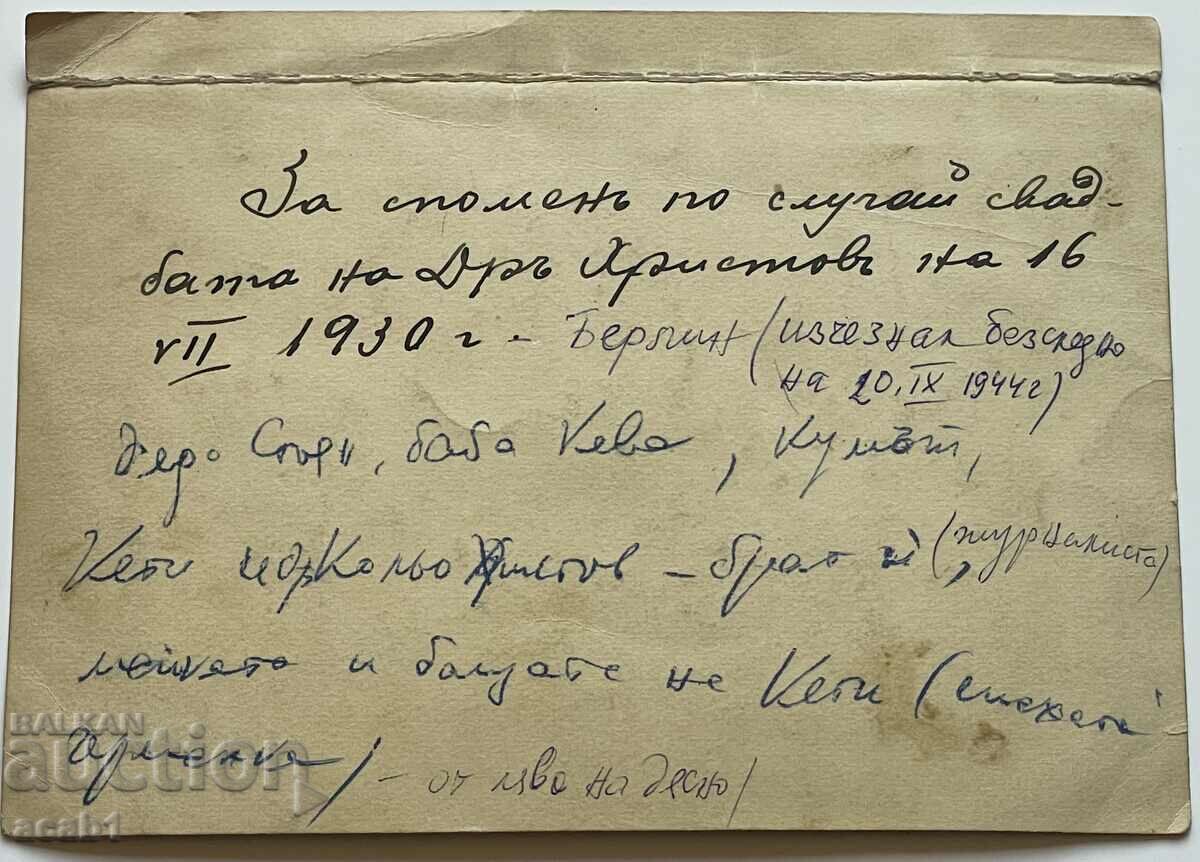 За споменъ по случай свад-
бата на Дръ Христовъ на 16
VII 1930 г - Берлин (изчезнал безследно
на 20.IX 1944г)
Дядо Стоян, баба Кева, Кумът,
Кети и др Кольо Христов - брат ѝ, (журналиста)
майката и бащата на Кети (снехата
арменка) - от ляво на дясно)
BALKAN
auction
acab1